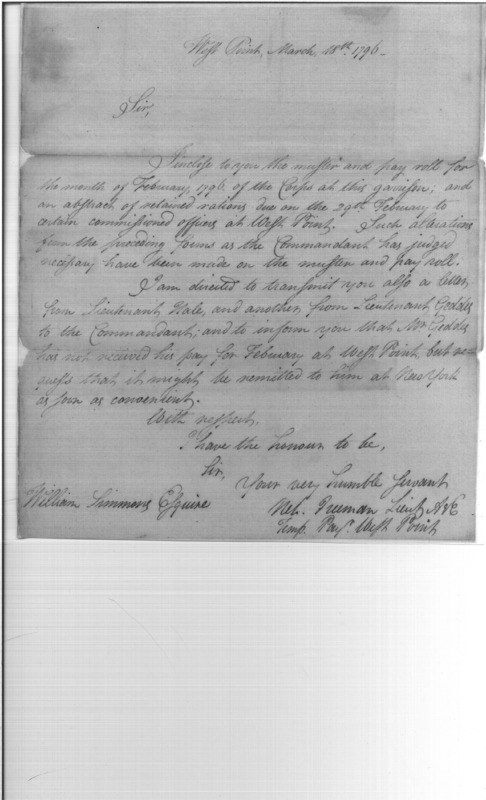 West Point, March 18th 1796.
Sir,
I inclose to you the muster and pay roll for
the month of February 1796, of the Corps at this garison; and
an abstract of retained rations due on the 29th February to
certain commissioned officers at West Point. Such alterations
from the preceding forms as the Commandant has judged
necessary have been made on the muster and pay roll.
I am directed to transmit you also a letter
from Lieutenant Hale, and another from Lieutenant Geddes
to the Commandant; and to inform you that Mr Geddes
has not received his pay for February at West Point, but re-
quests that it might be remitted to him at New York
as soon as convenient.
With respect,
I have the honour to be,
Sir,
Your very humble Servant
William Simmons Esquire
Neh. Freeman Lieut A&E
Temp. Payr. West Point